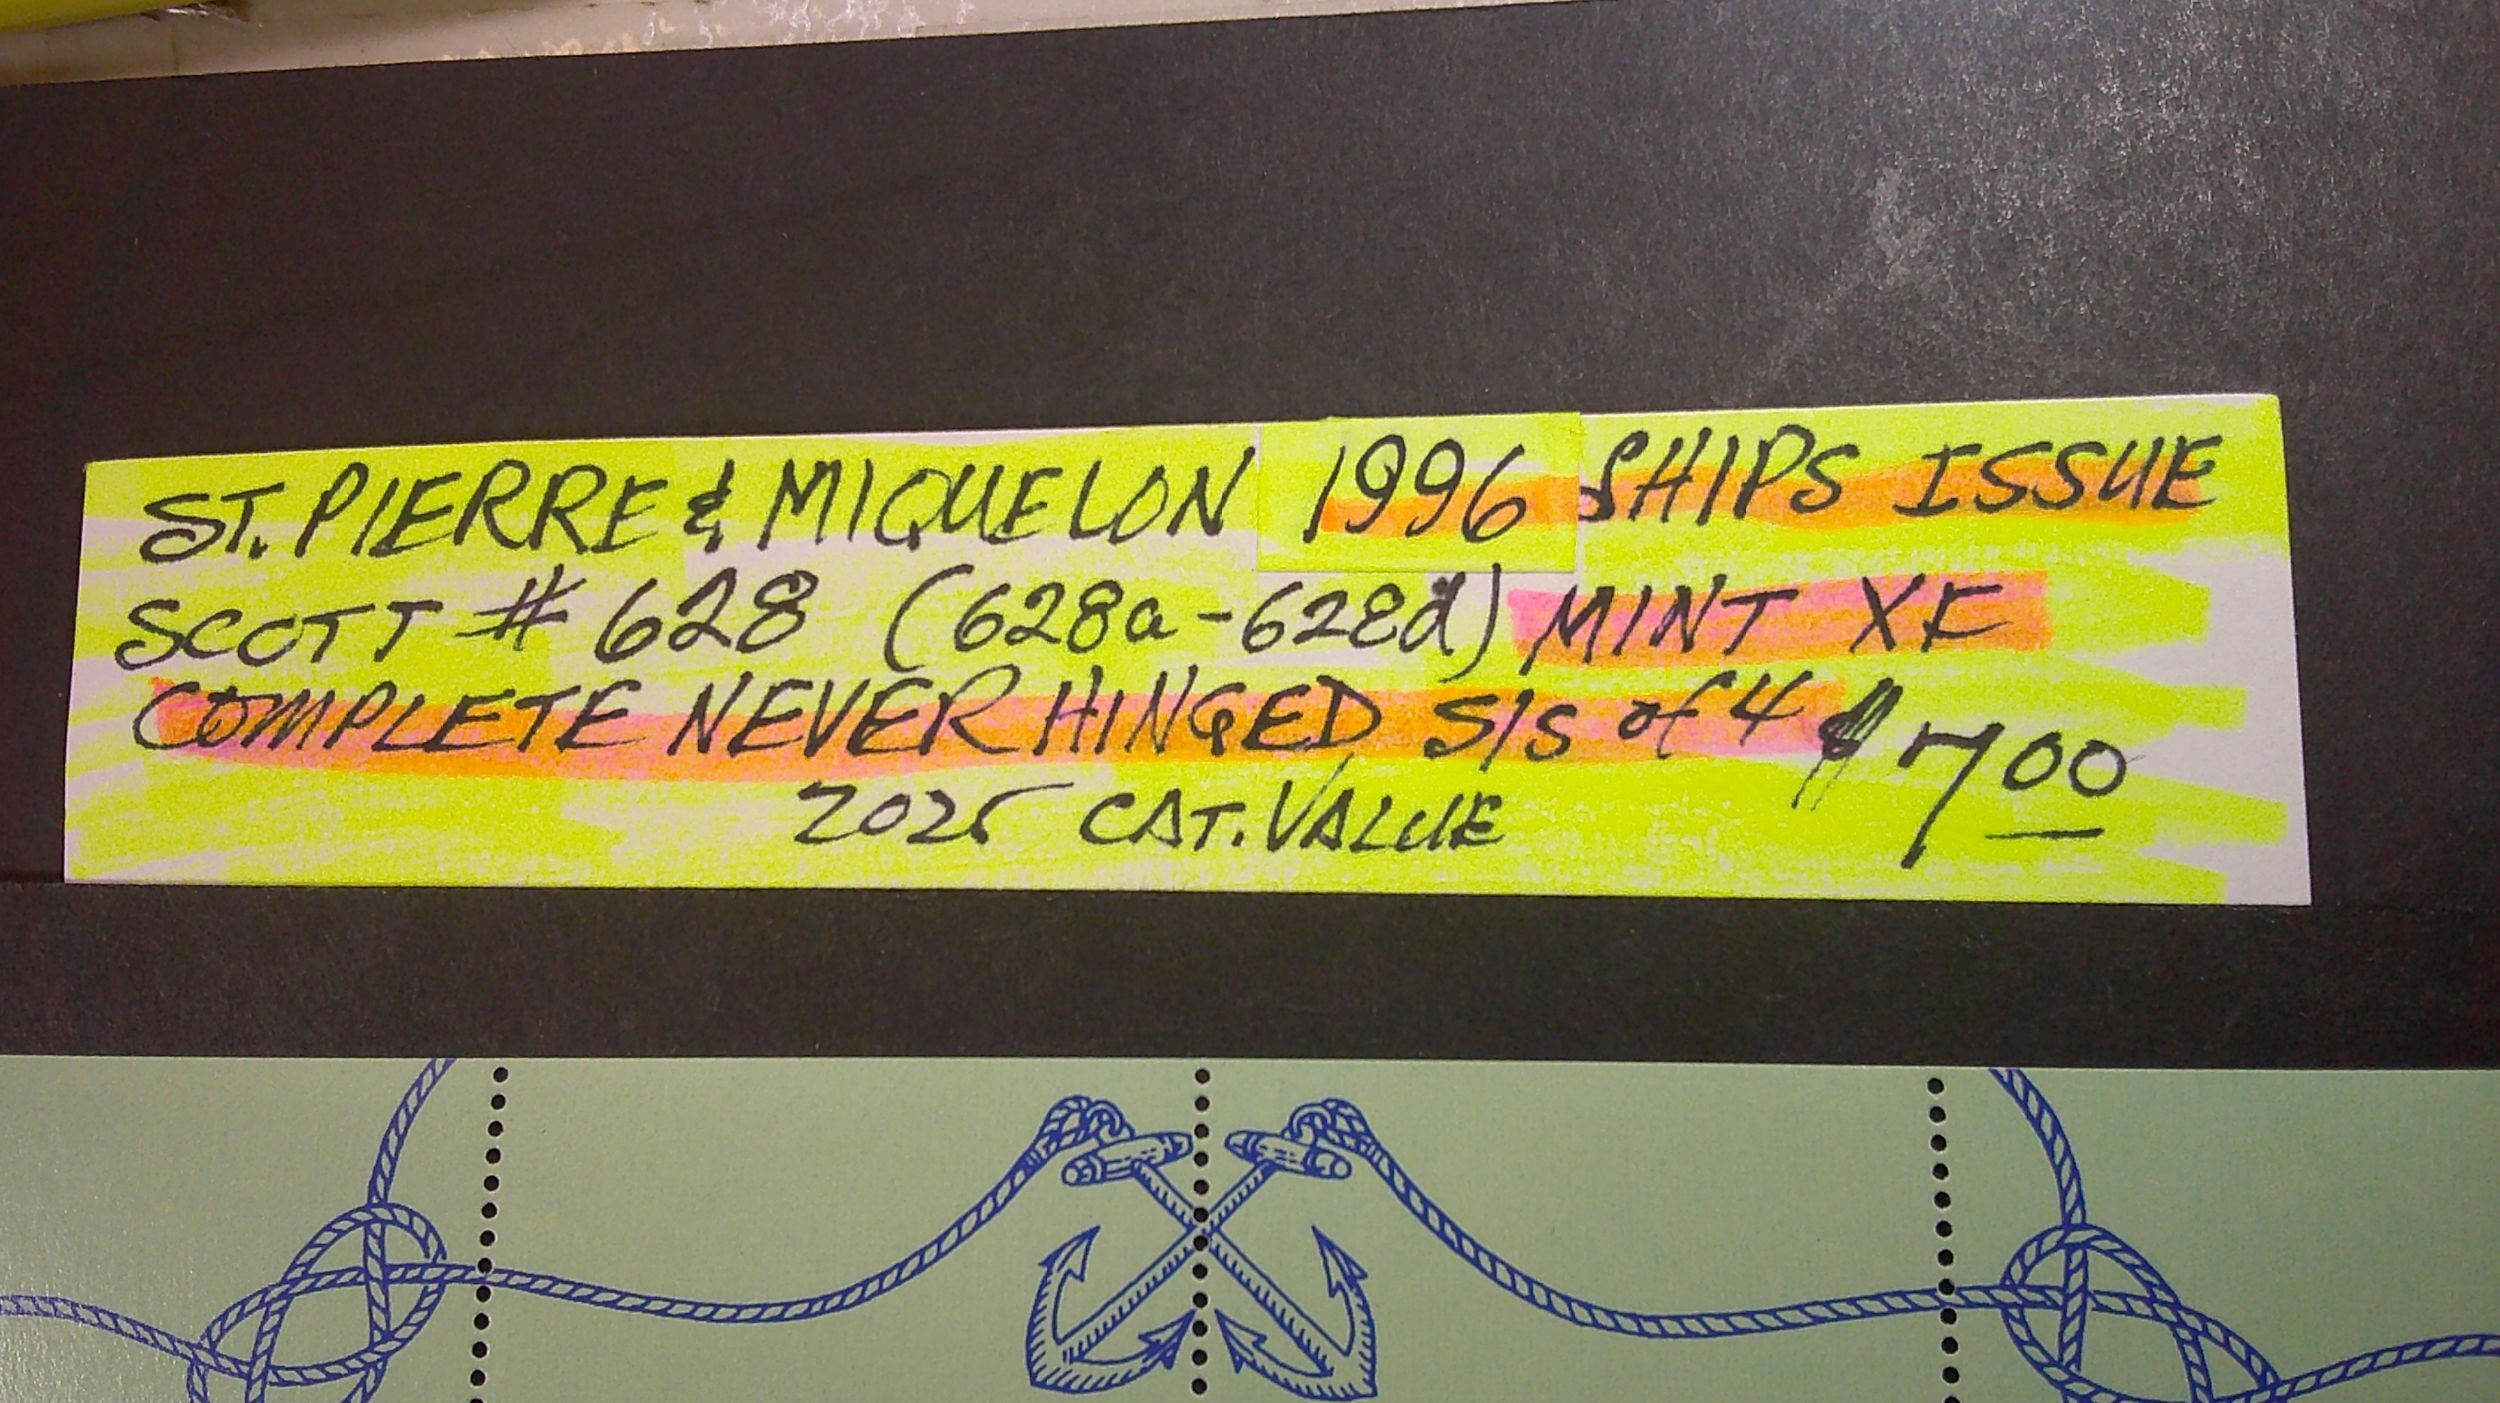 ST. PIERRE & MIQUELON 1996 SHIPS ISSUE
SCOTT # 628 (628a-628d) MINT XF
COMPLETE NEVER HINGED S/S of 4 $ 7 00
2025 CAT. VALUE